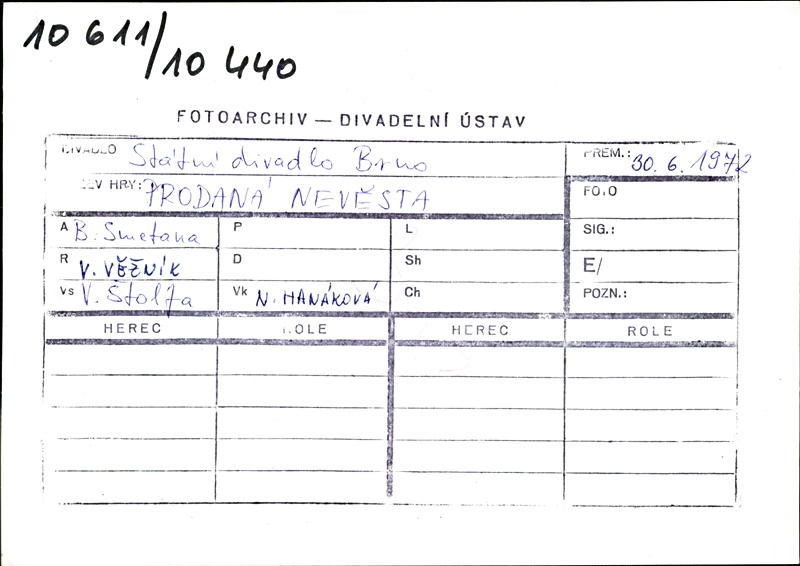 10 611/10 440
FOTOARCHIV — DIVADELNÍ ÚSTAV
DIVADLO Státní divadlo Brno
PREM.: 30. 6. 1972
EV HRY: PRODANÁ NEVĚSTA
FOTO
A B. Smetana P L SIG.:
R V. VĚŽNÍK D Sh E/
Vs V. Štolfa Vk N. HANÁKOVÁ Ch POZN.:
HEREC ROLE HEREC ROLE